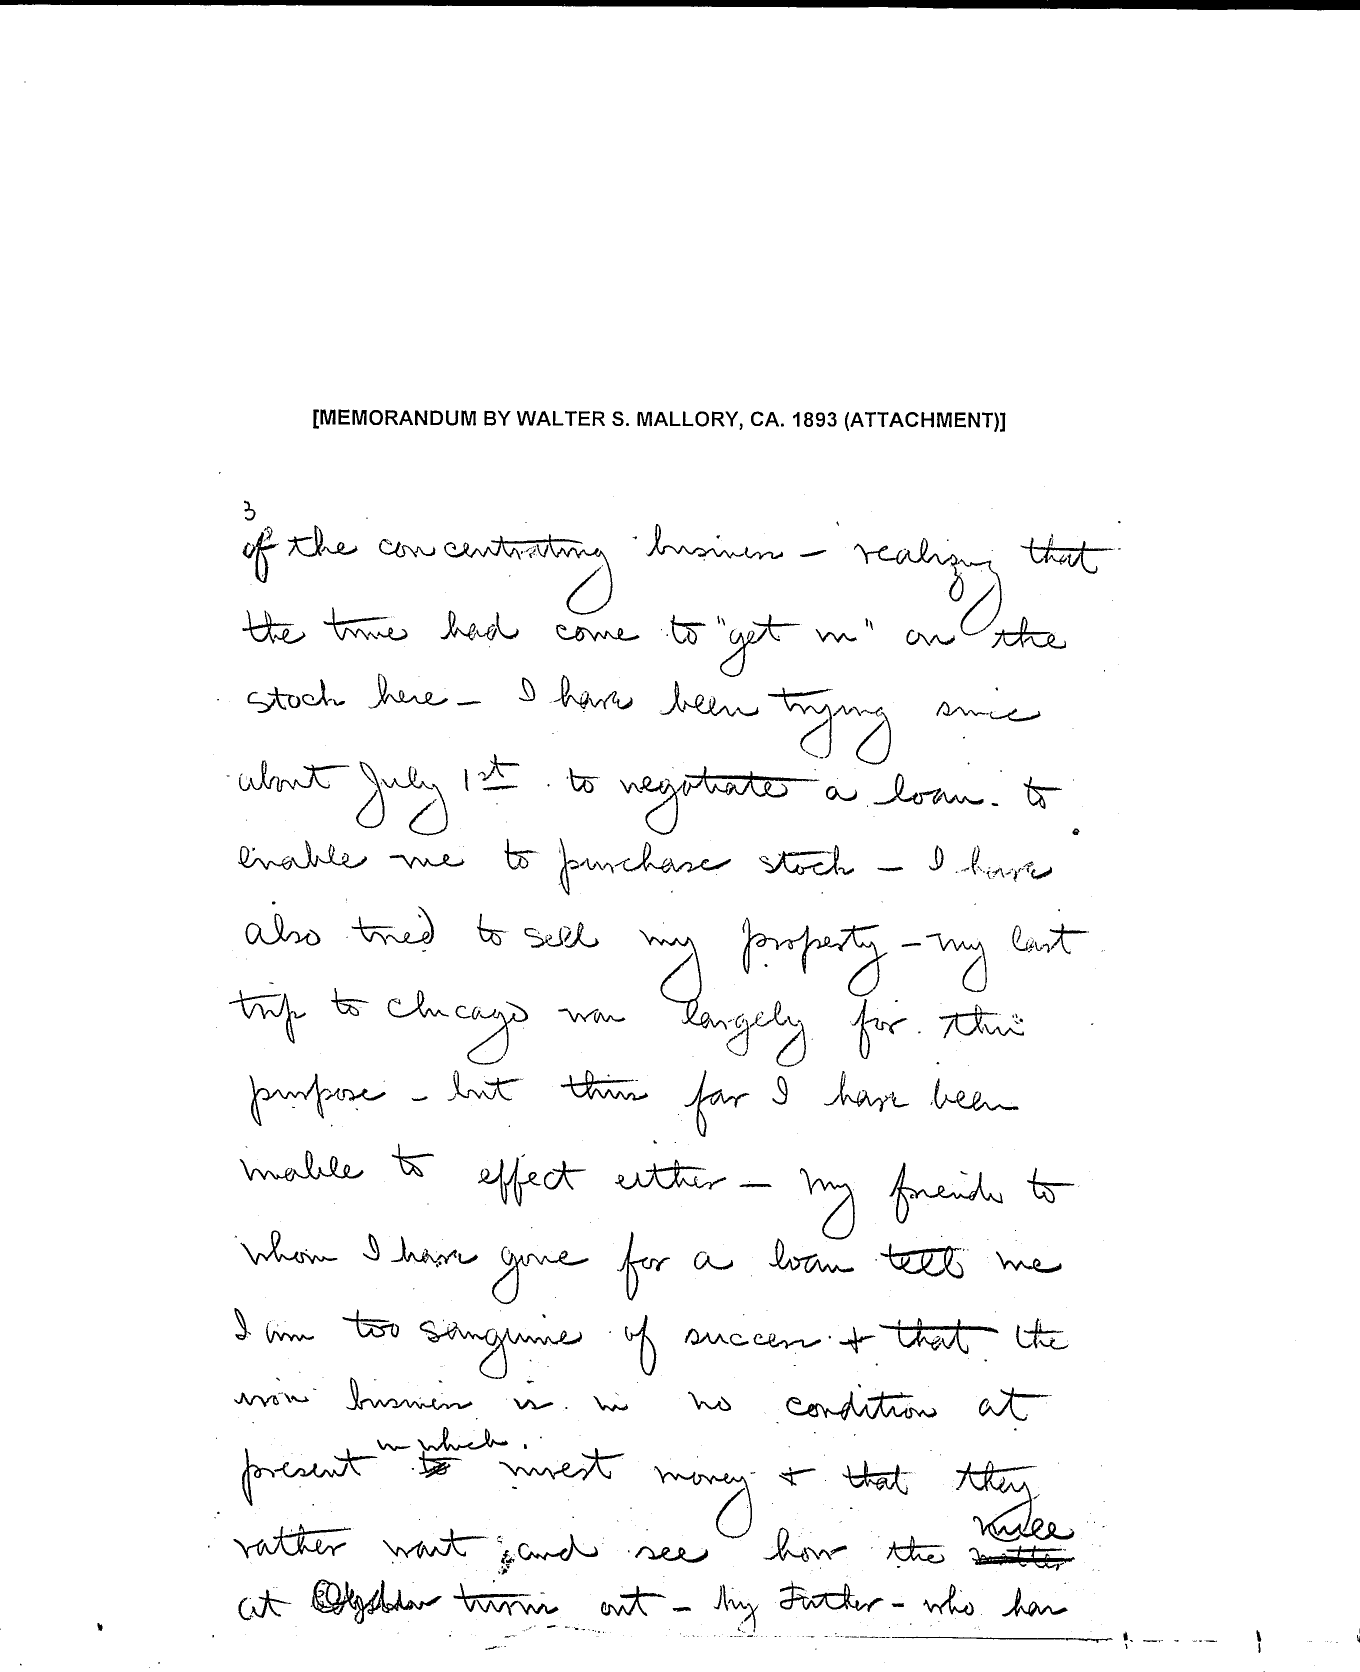 [MEMORANDUM BY WALTER S. MALLORY, CA. 1893 (ATTACHMENT)]
3
of the concentrating business – realizing that
the time had come to "get in" on the
stock here – I have been trying since
about July 1st to negotiate a loan – to
enable me to purchase stock – I have
also tried to sell my property – my last
trip to Chicago was largely for this
purpose – but thus far I have been
unable to effect either – my friends to
whom I have gone for a loan tell me
I am too sanguine of success + that the
iron business is in no condition at
present in which to invest money + that they
rather wait and see how the mill
at turns out – My Father – who has